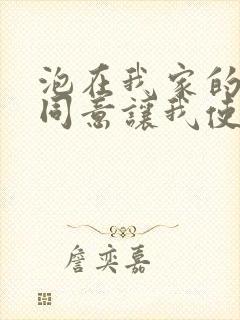 泡在我家的
同意讓我使
詹奕嘉